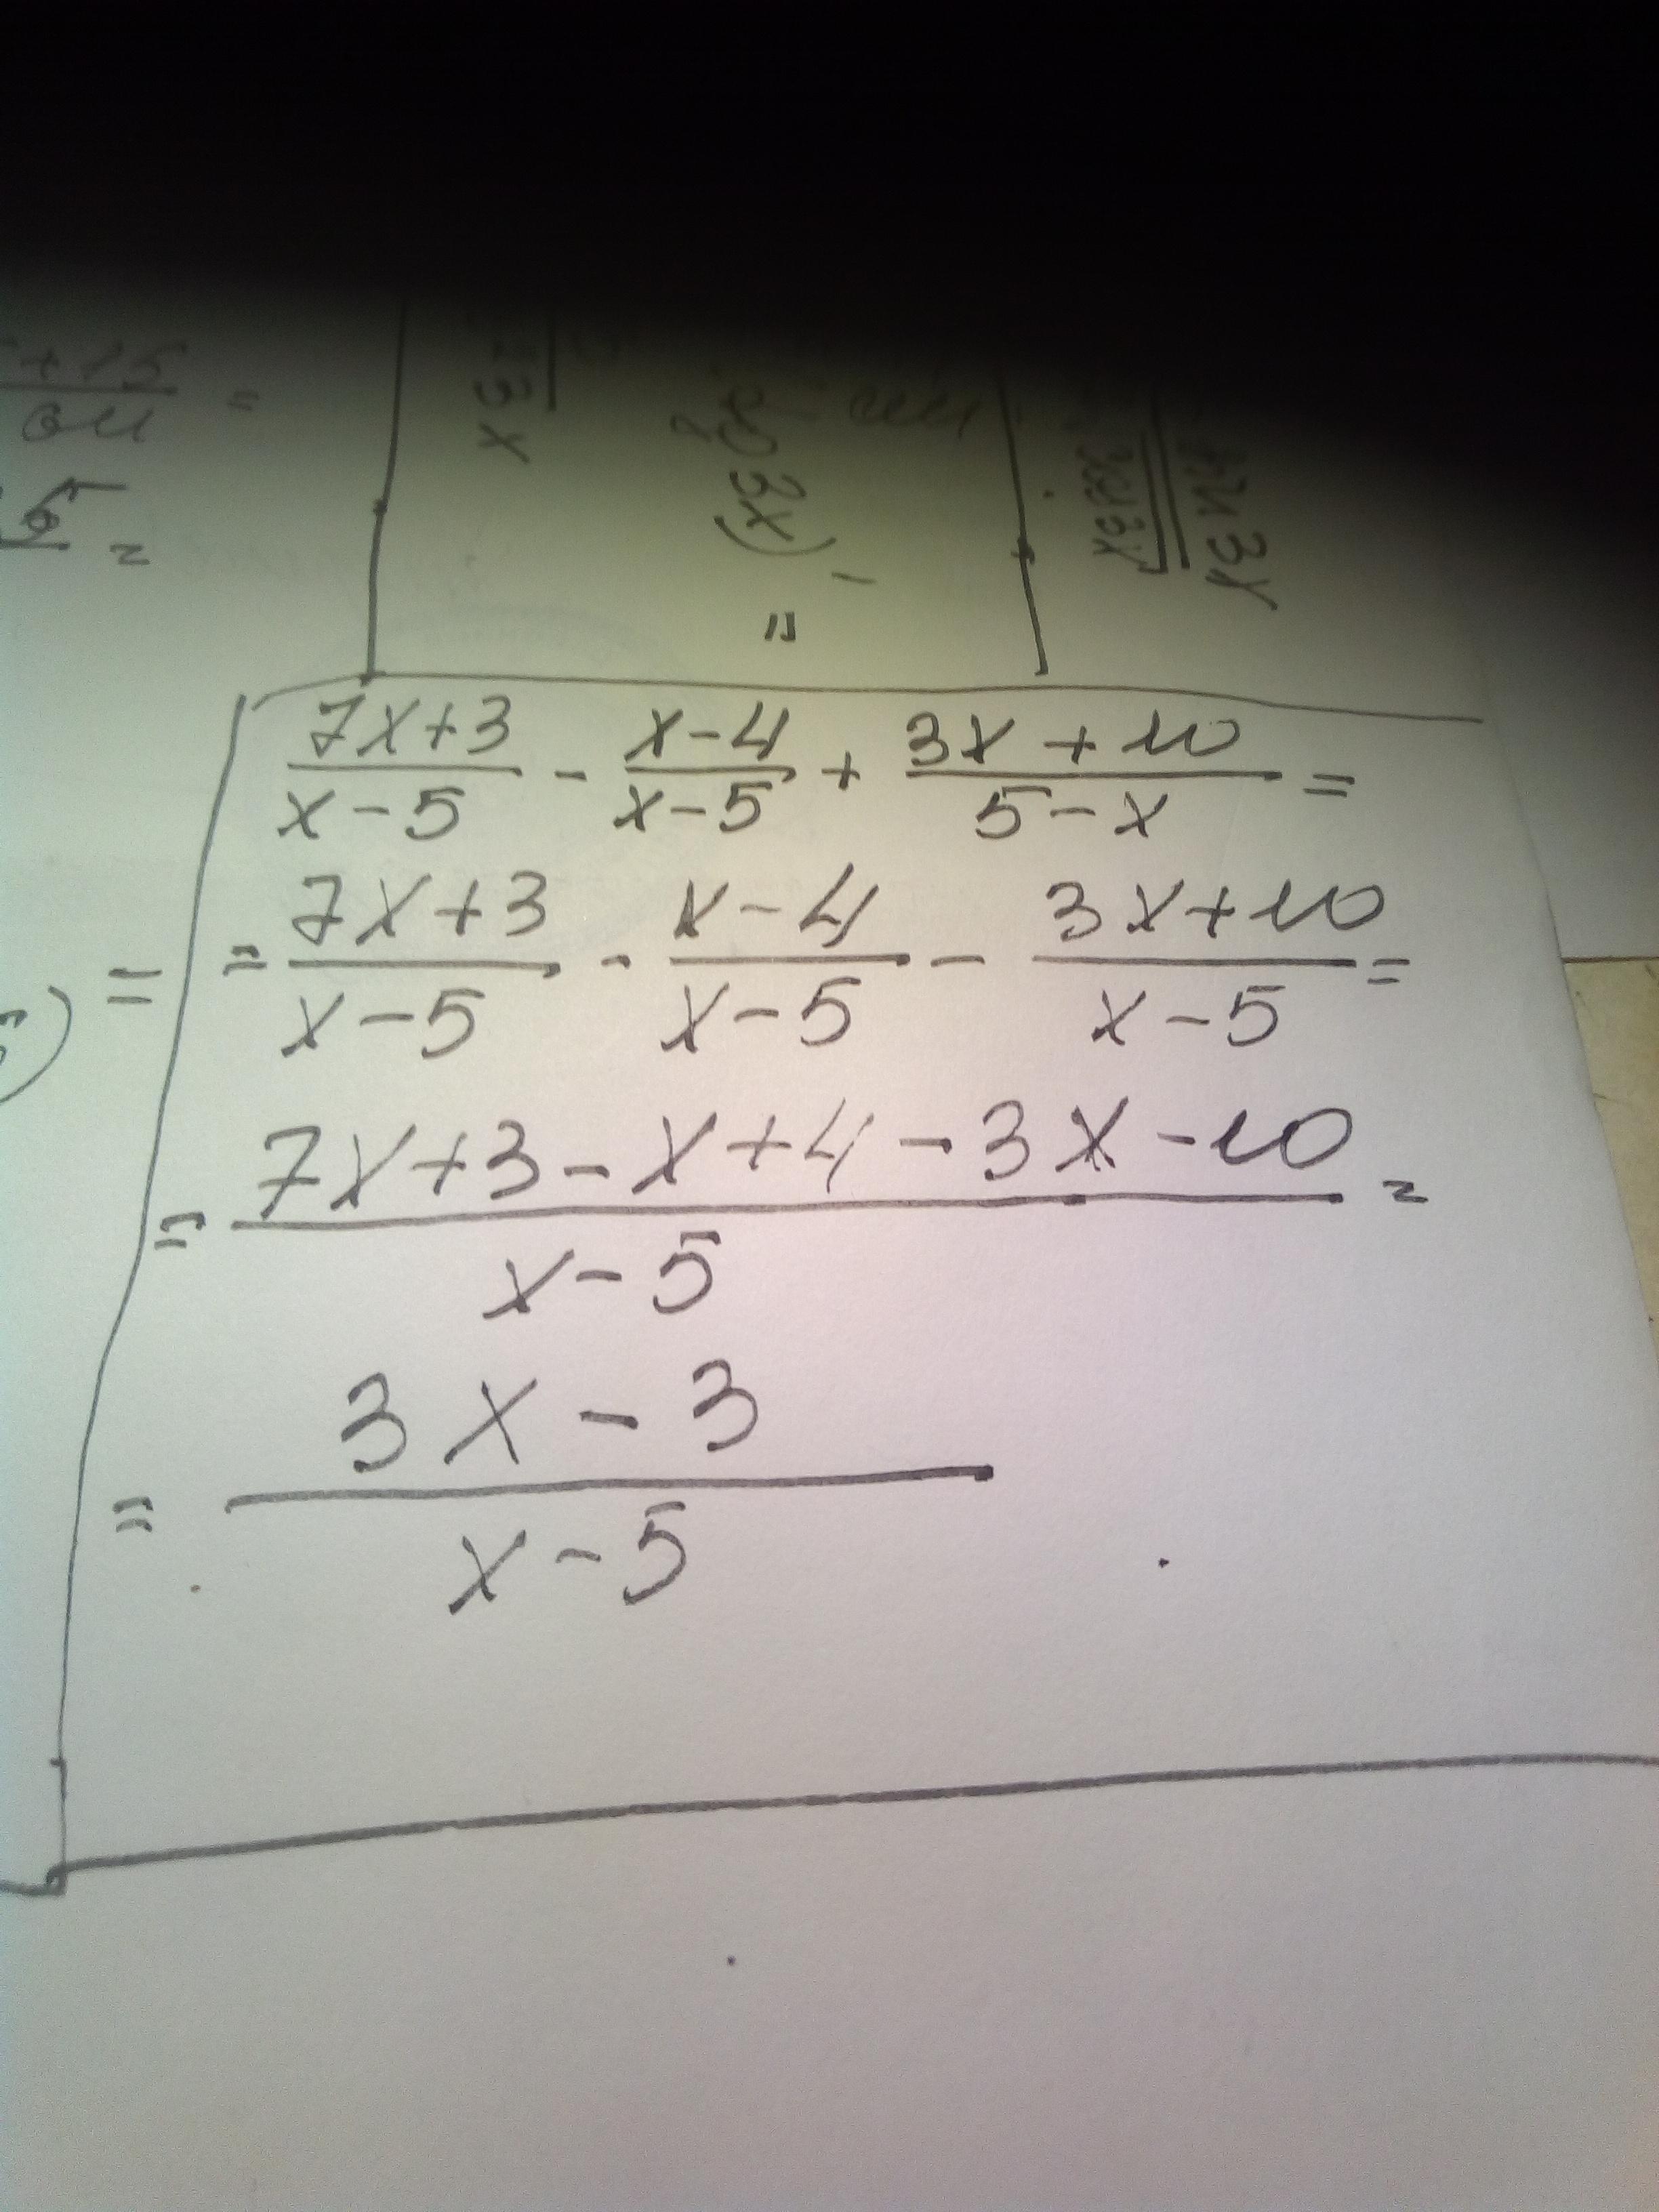 +15 =
5 =
3x
3x)
=
3x
3x
(7x+3)/(x-5) - (x-4)/(x-5) + (3x+10)/(5-x) =
= (7x+3)/(x-5) - (x-4)/(x-5) - (3x+10)/(x-5) =
) =
= (7x+3-x+4-3x-10)/(x-5) =
= (3x-3)/(x-5)